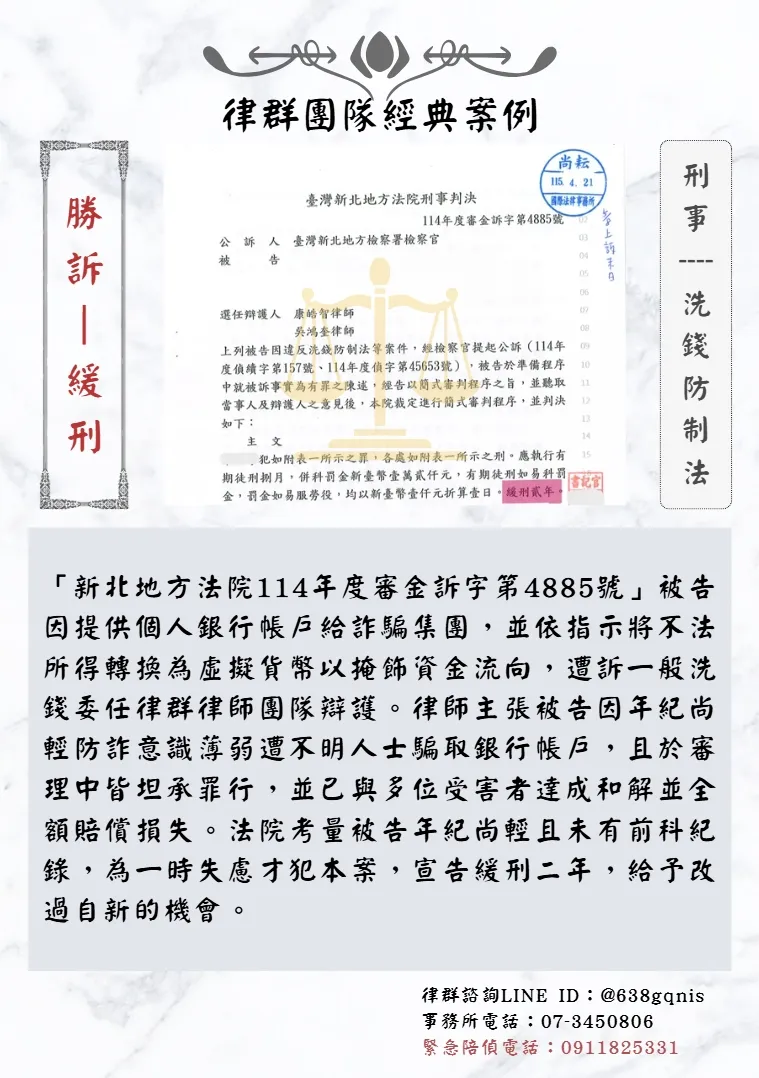 律群團隊經典案例
勝訴—緩刑
尚耘
115. 4. 21
國際法律事務所
臺灣新北地方法院刑事判決
114年度審金訴字第4885號
公訴人 臺灣新北地方檢察署檢察官
被告
選任辯護人 康皓智律師
吳鴻奎律師
上列被告因違反洗錢防制法等案件,經檢察官提起公訴(114年
度偵續字第157號、114年度偵字第45653號),被告於準備程序
中就被訴事實為有罪之陳述,經告以簡式審判程序之旨,並聽取
當事人及辯護人之意見後,本院裁定進行簡式審判程序,並判決
如下:
主文
犯如附表一所示之罪,各處如附表一所示之刑。應執行有
期徒刑捌月,併科罰金新臺幣壹萬貳仟元,有期徒刑如易科罰
金,罰金如易服勞役,均以新臺幣壹仟元折算壹日。緩刑貳年。
書記官
02
03
04
05
06
07
08
09
10
11
12
13
14
15
刑事----洗錢防制法
「新北地方法院114年度審金訴字第4885號」被告
因提供個人銀行帳戶給詐騙集團,並依指示將不法
所得轉換為虛擬貨幣以掩飾資金流向,遭訴一般洗
錢委任律群律師團隊辯護。律師主張被告因年紀尚
輕防詐意識薄弱遭不明人士騙取銀行帳戶,且於審
理中皆坦承罪行,並已與多位受害者達成和解並全
額賠償損失。法院考量被告年紀尚輕且未有前科紀
錄,為一時失慮才犯本案,宣告緩刑二年,給予改
過自新的機會。
律群諮詢LINE ID:@638gqnis
事務所電話:07-3450806
緊急陪偵電話:0911825331